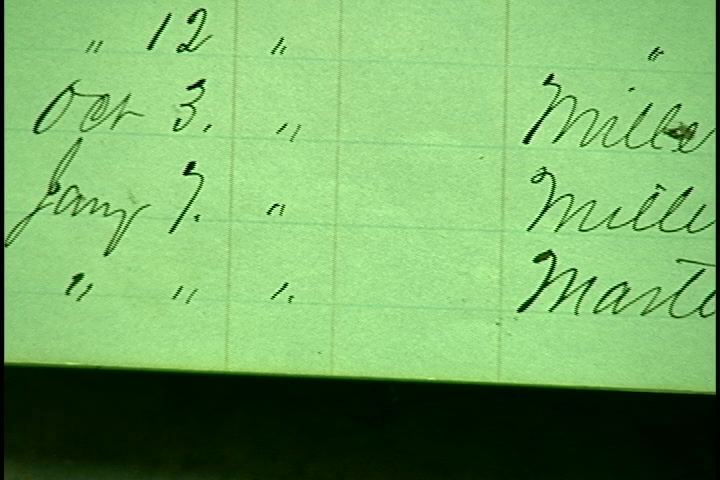 " 12 " "
Oct 3. " Mille
Jany 7. " Mille
" " " Marte